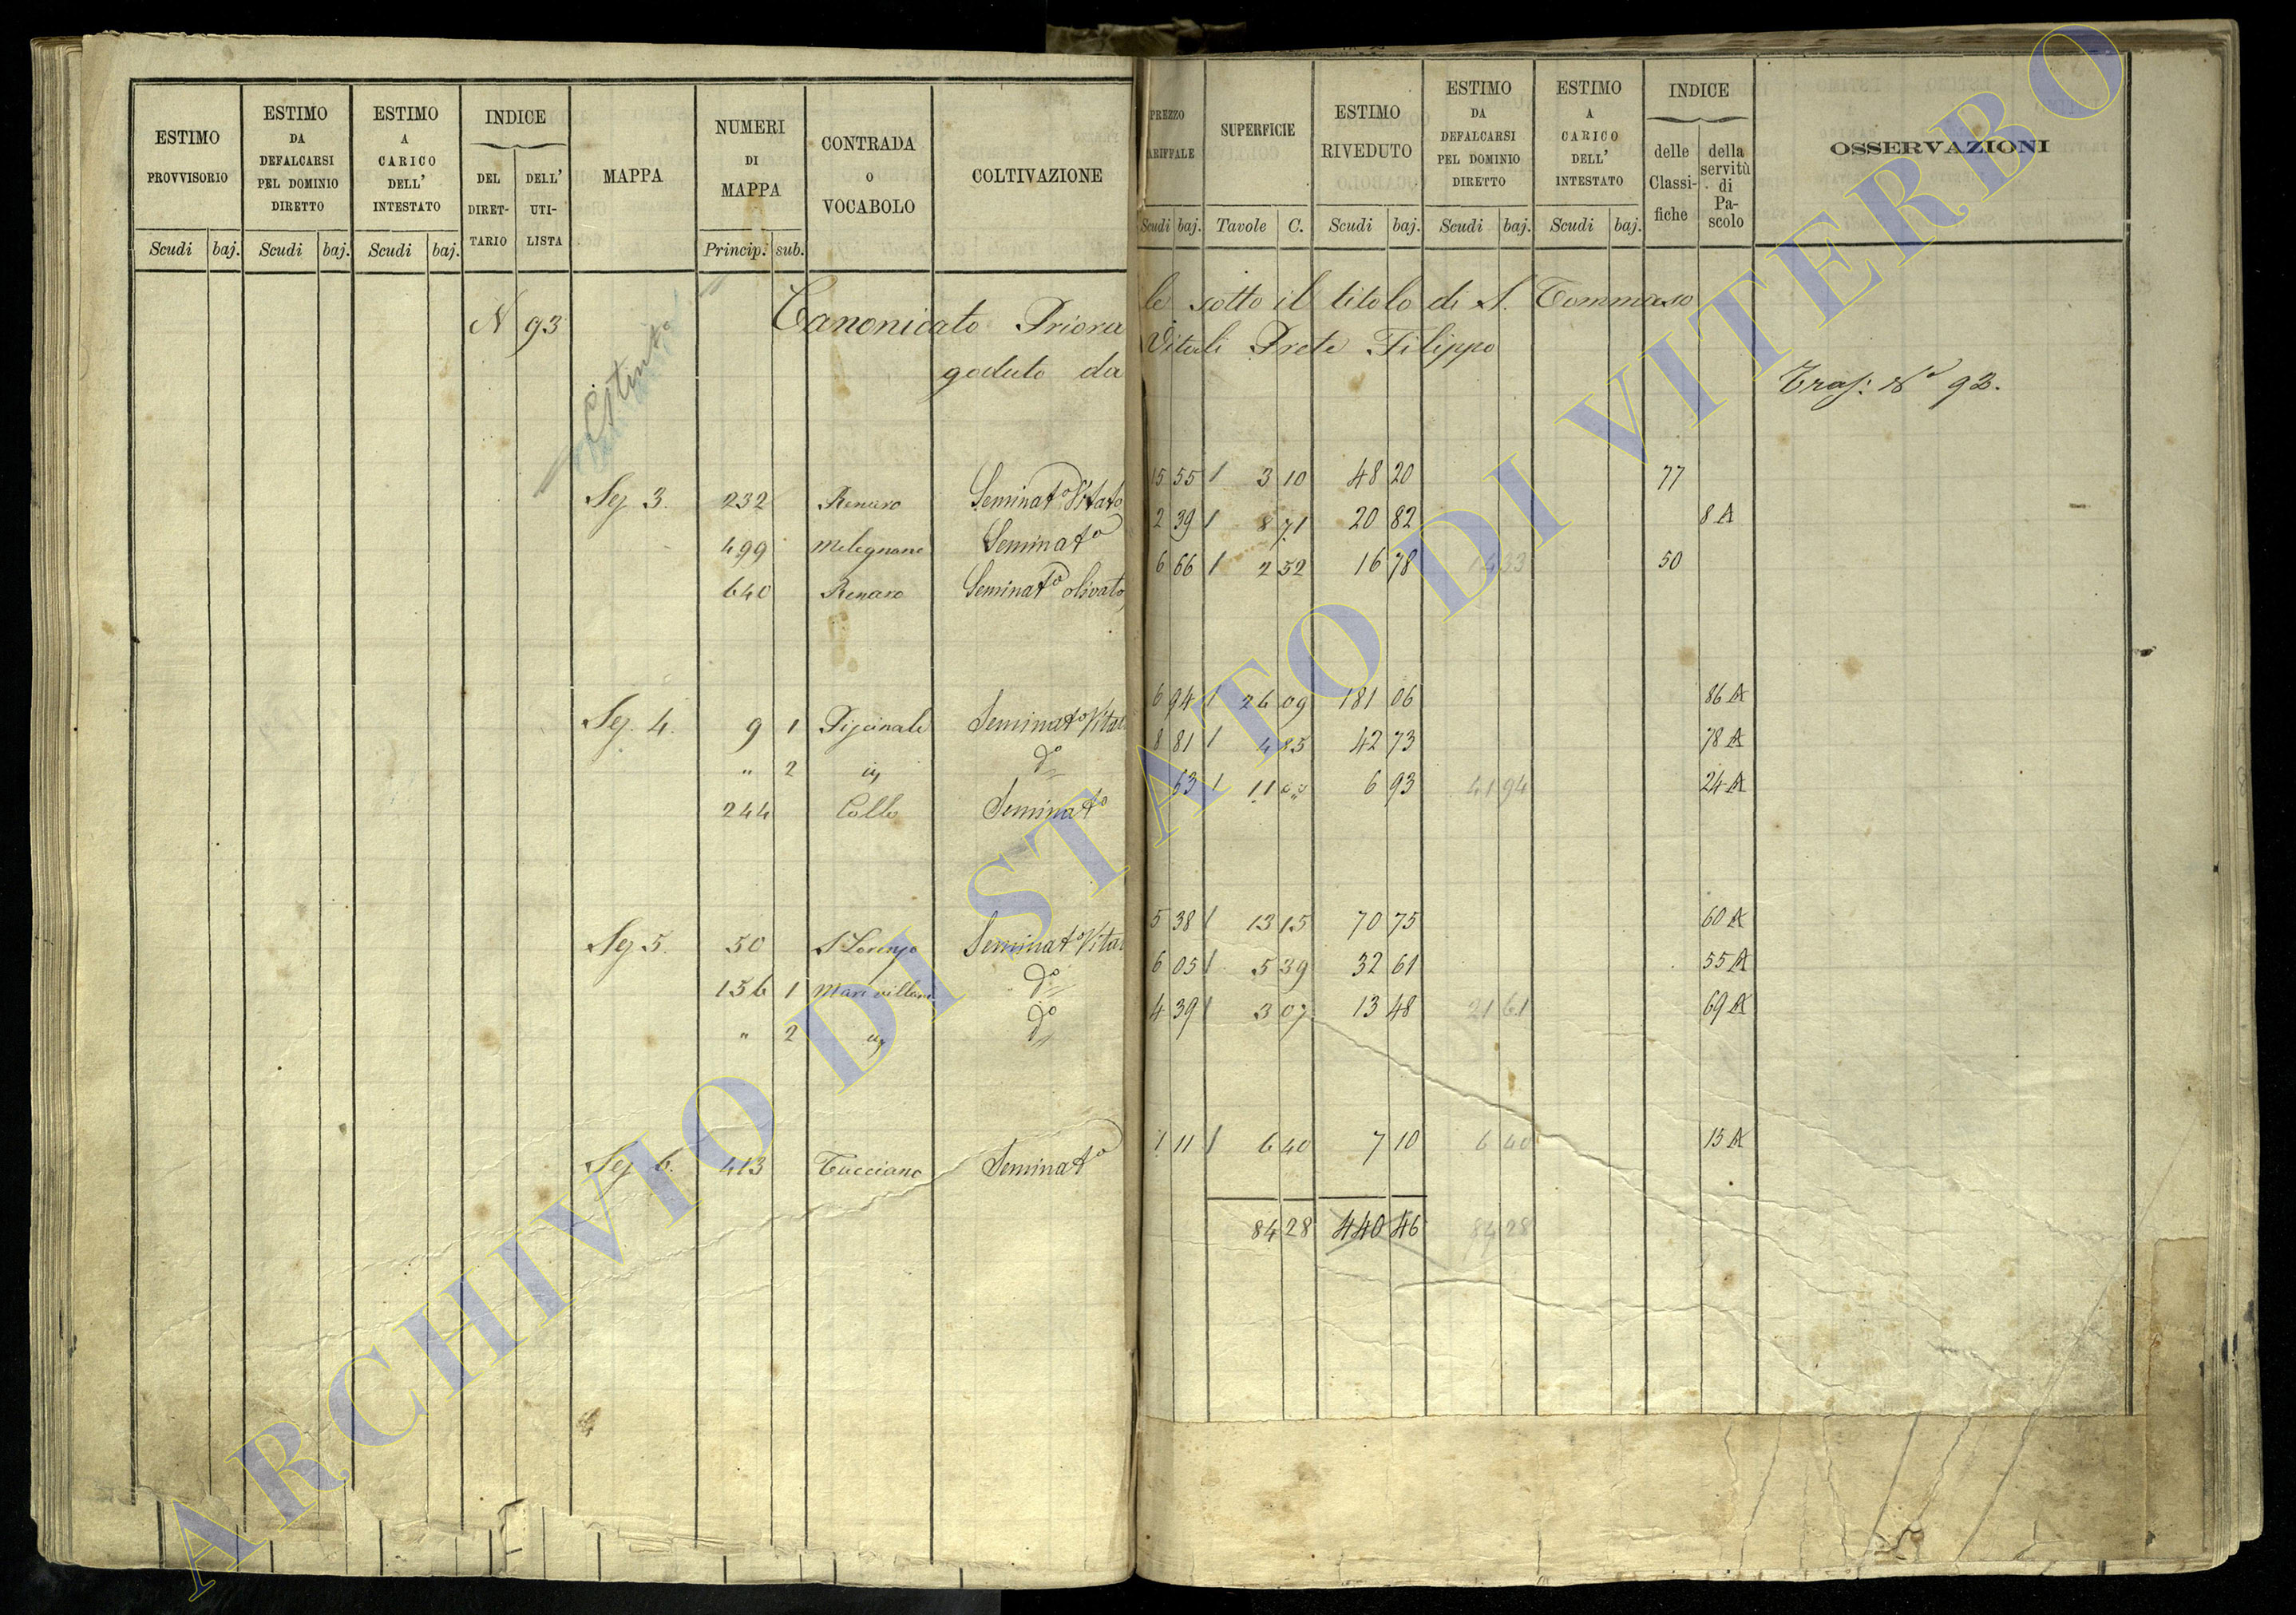 ESTIMO PROVVISORIO
ESTIMO DA DEFALCARSI PEL DOMINIO DIRETTO
ESTIMO A CARICO DELL' INTESTATO
INDICE
DEL DIRET-TARIO
DELL' UTI-LISTA
MAPPA
NUMERI DI MAPPA
CONTRADA O VOCABOLO
COLTIVAZIONE
PREZZO
ARIFFALE
SUPERFICIE
ESTIMO RIVEDUTO
ESTIMO DA DEFALCARSI PEL DOMINIO DIRETTO
ESTIMO A CARICO DELL' INTESTATO
INDICE
delle Classi-fiche
della servitù di Pa-scolo
OSSERVAZIONI
Scudi baj. Scudi baj. Scudi baj. Princip. sub. Scudi baj. Tavole C. Scudi baj. Scudi baj. Scudi baj.
N 93 Canonicato Priorale sotto il titolo di S. Tommaso
goduto da Vitali Prete Filippo
Estinto
Traf: N° 93.
Seg 3. 232 Renaro Seminato Vitato 15 55 / 3 10 48 20 77
499 Melegnano Seminato 2 39 / 8 71 20 82 8 A
640 Renaro Seminato olivato 6 66 / 2 52 16 78 14 33 50
Seg. 4. 9 1 Piscinale Seminato Vitat 6 94 / 26 09 181 06 86 A
" 2 do 8 81 / 4 85 42 73 78 A
244 Collo Seminato 63 / 11 00 6 93 41 94 24 A
Seg 5. 50 S Lorenzo Seminato Vitat 5 38 / 13 15 70 75 60 A
156 1 Marivillano do 6 05 / 5 39 32 61 55 A
" 2 do 4 39 / 3 07 13 48 21 61 69 A
Seg 6. 413 Tucciano Seminato 1 11 / 6 40 7 10 6 40 15 A
84 28 440 46 84 28
ARCHIVIO DI STATO DI VITERBO